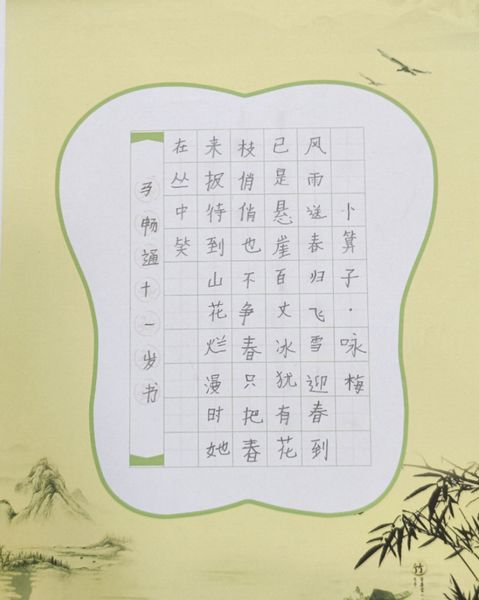 卜算子·咏梅
风雨送春归飞雪迎春到
已是悬崖百丈冰犹有花
枝俏俏也不争春只把春
来报待到山花烂漫时她
在丛中笑
马畅通十一岁书